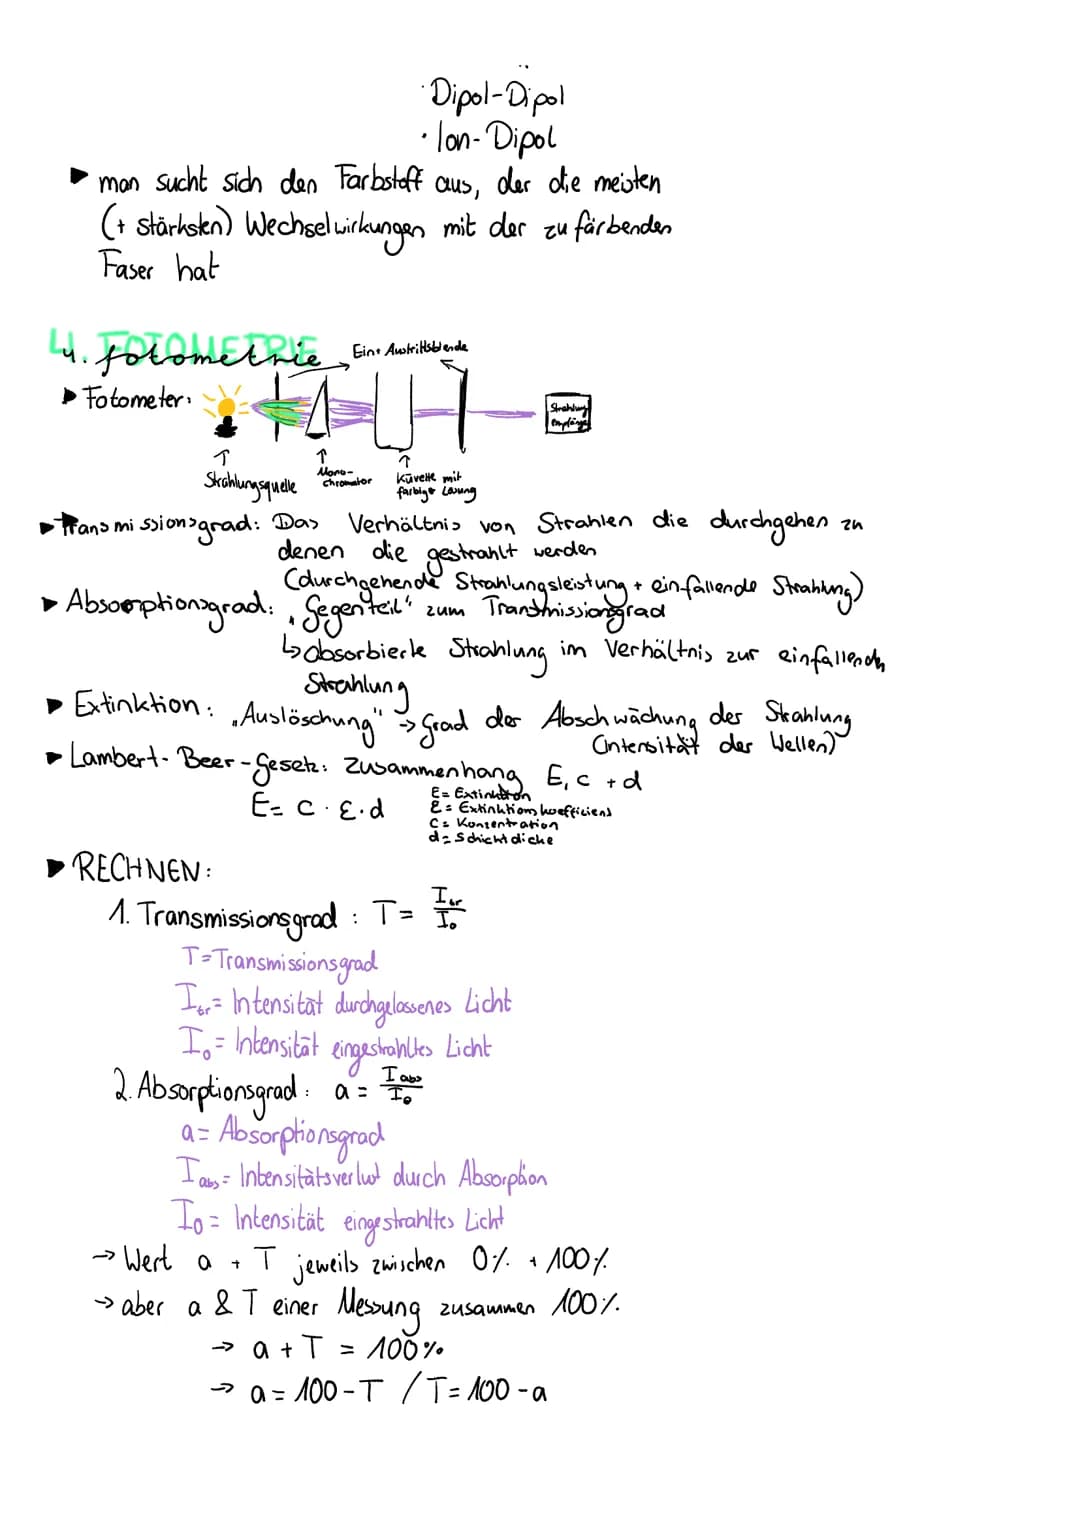 · Dipol-Dipol
· Ion-Dipol
▶ man sucht sich den Farbstoff aus, der die meisten
(+ stärksten) Wechselwirkungen mit der zu färbenden
Faser hat
4. FOTOMETRIE
4. fotometrie
Ein+ Austrittsblende
▶ Fotometer:
Strahlungs
empfänger
↑ ↑ ↑
Strahlungsquelle
Mono-
chromator
Küvette mit
farbiger Lösung
▶ Transmissionsgrad: Das Verhältnis von Strahlen die durchgehen zu
denen die gestrahlt werden
(durchgehende Strahlungsleistung + einfallende Strahlung)
▶ Absorptionsgrad: „Gegenteil" zum Transmissionsgrad
↳ absorbierte Strahlung im Verhältnis zur einfallenden
Strahlung
▶ Extinktion: „Auslöschung" → Grad der Abschwächung der Strahlung
(Intensität der Wellen)
▶ Lambert-Beer-Gesetz: Zusammenhang E, c + d
E = c · ε · d
E = Extinktion
ε = Extinktionskoefficient
C = Konzentration
d = Schichtdicke
▶ RECHNEN:
1. Transmissionsgrad : T = I_tr / I_0
T = Transmissionsgrad
I_tr = Intensität durchgelassenes Licht
I_0 = Intensität eingestrahltes Licht
2. Absorptionsgrad : a = I_abs / I_0
a = Absorptionsgrad
I_abs = Intensitätsverlust durch Absorption
I_0 = Intensität eingestrahltes Licht
→ Wert a + T jeweils zwischen 0% + 100%
→ aber a & T einer Messung zusammen 100%.
→ a + T = 100%
→ a = 100 - T / T = 100 - a